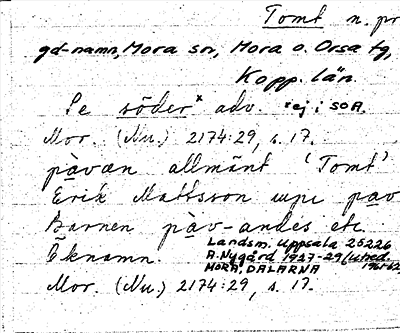 Tomt n. pr
gd-namn, Mora sn, Mora o. Orsa tg,
Kopp. län.
Se söder* adv. *ej i SOA.
Mor. (Nu.) 2174:29, s. 17.
pàvæn allmänt 'Tomt'
Erik Mattsson upp pav
Barnen pàv-andes etc.
Öknamn.
Landsm. Uppsala 25226
A. Nygård 1927-29 (utred. 1961-62)
MORA, DALARNA
Mor. (Nu.) 2174:29, s. 17.